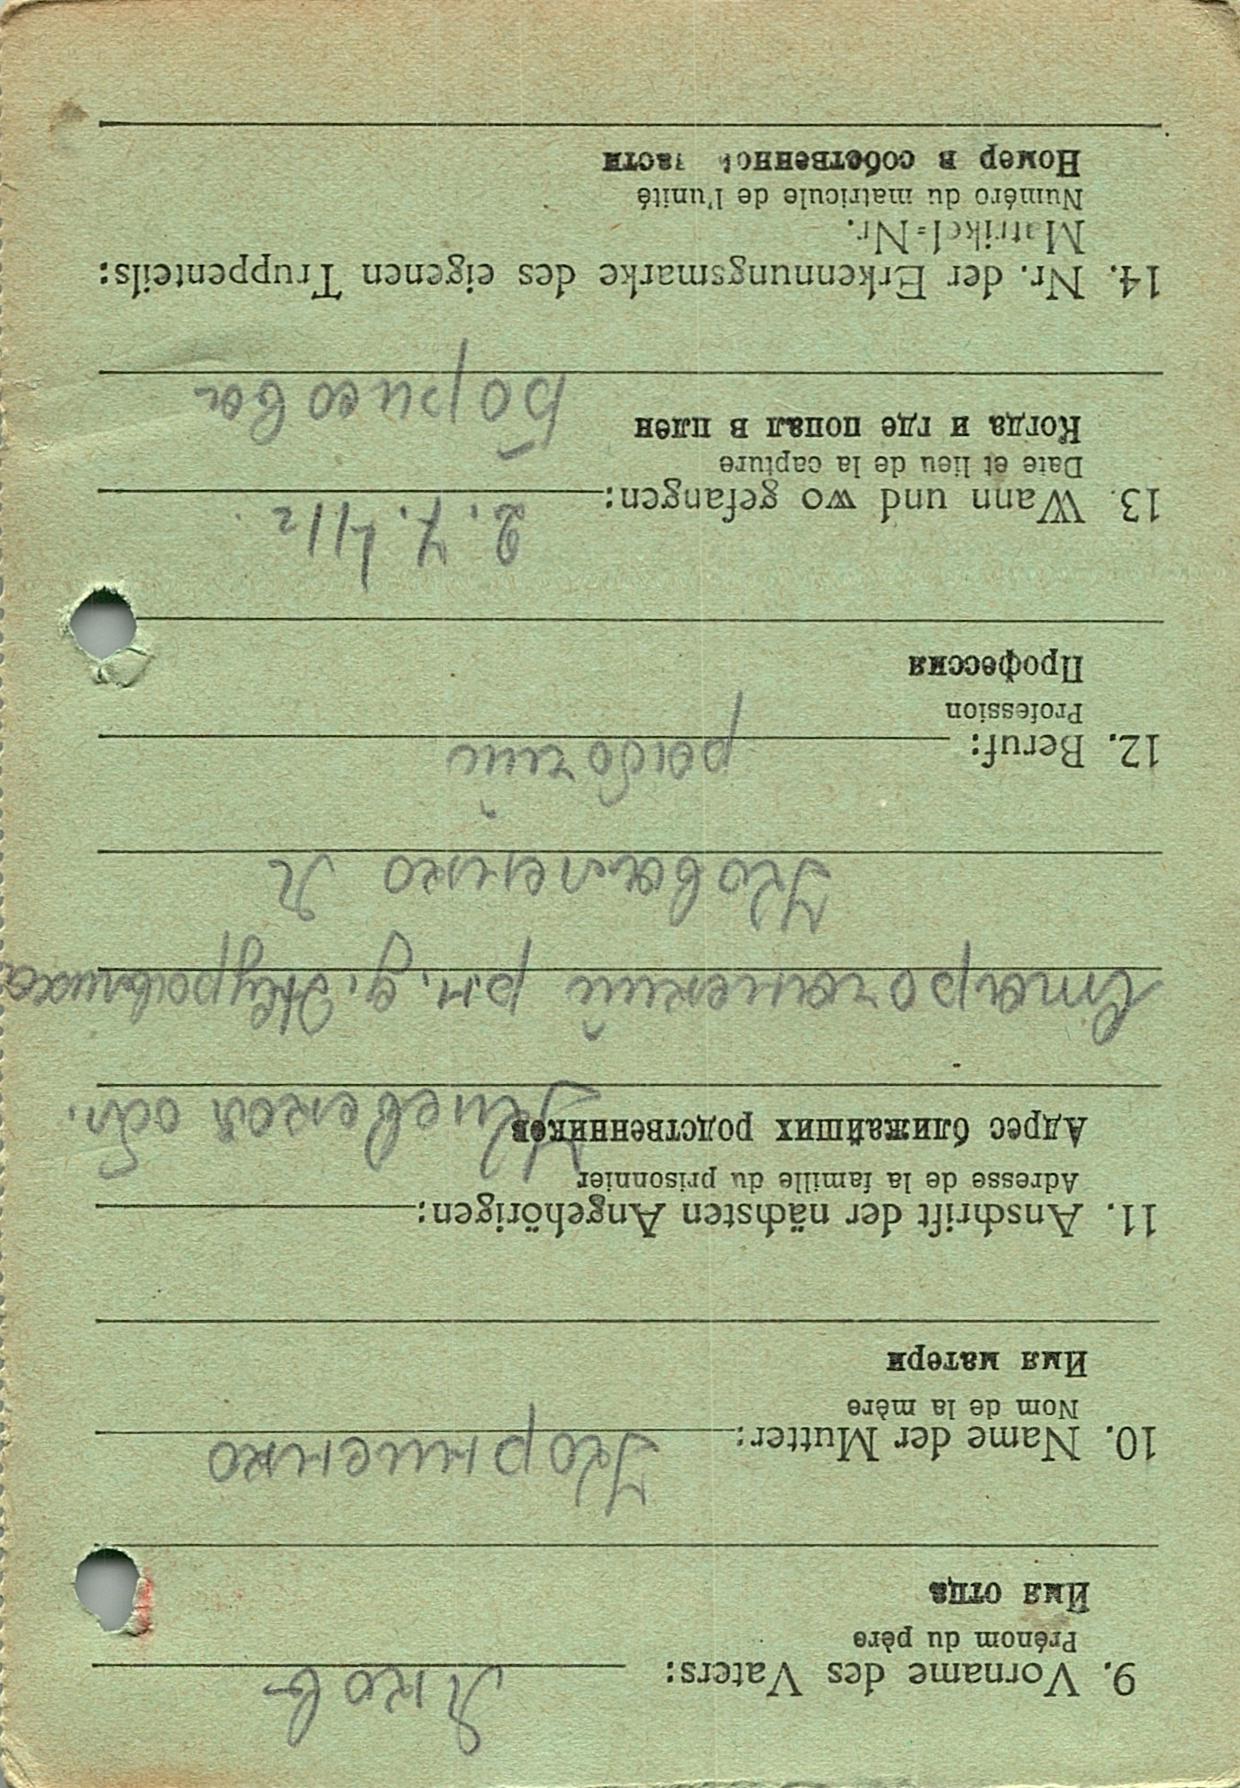 9. Vorname des Vaters: Яков
Prénom du père
Имя отца
10. Name der Mutter: Корниенко
Nom de la mère
Имя матери
11. Anschrift der nächsten Angehörigen:
Adresse de la famille du prisonnier
Адрес ближайших родственников Киевской обл.
р-н. д.
Коваленко Я
12. Beruf: рабочий
Profession
Профессия
13. Wann und wo gefangen: 2. 7. 41 г
Date et lieu de la capture
Когда и где попал в плен
Борисовск
14. Nr. der Erkennungsmarke des eigenen Truppenteils:
Matrikel=Nr.
Numéro du matricule de l'unité
Номер в собственной части